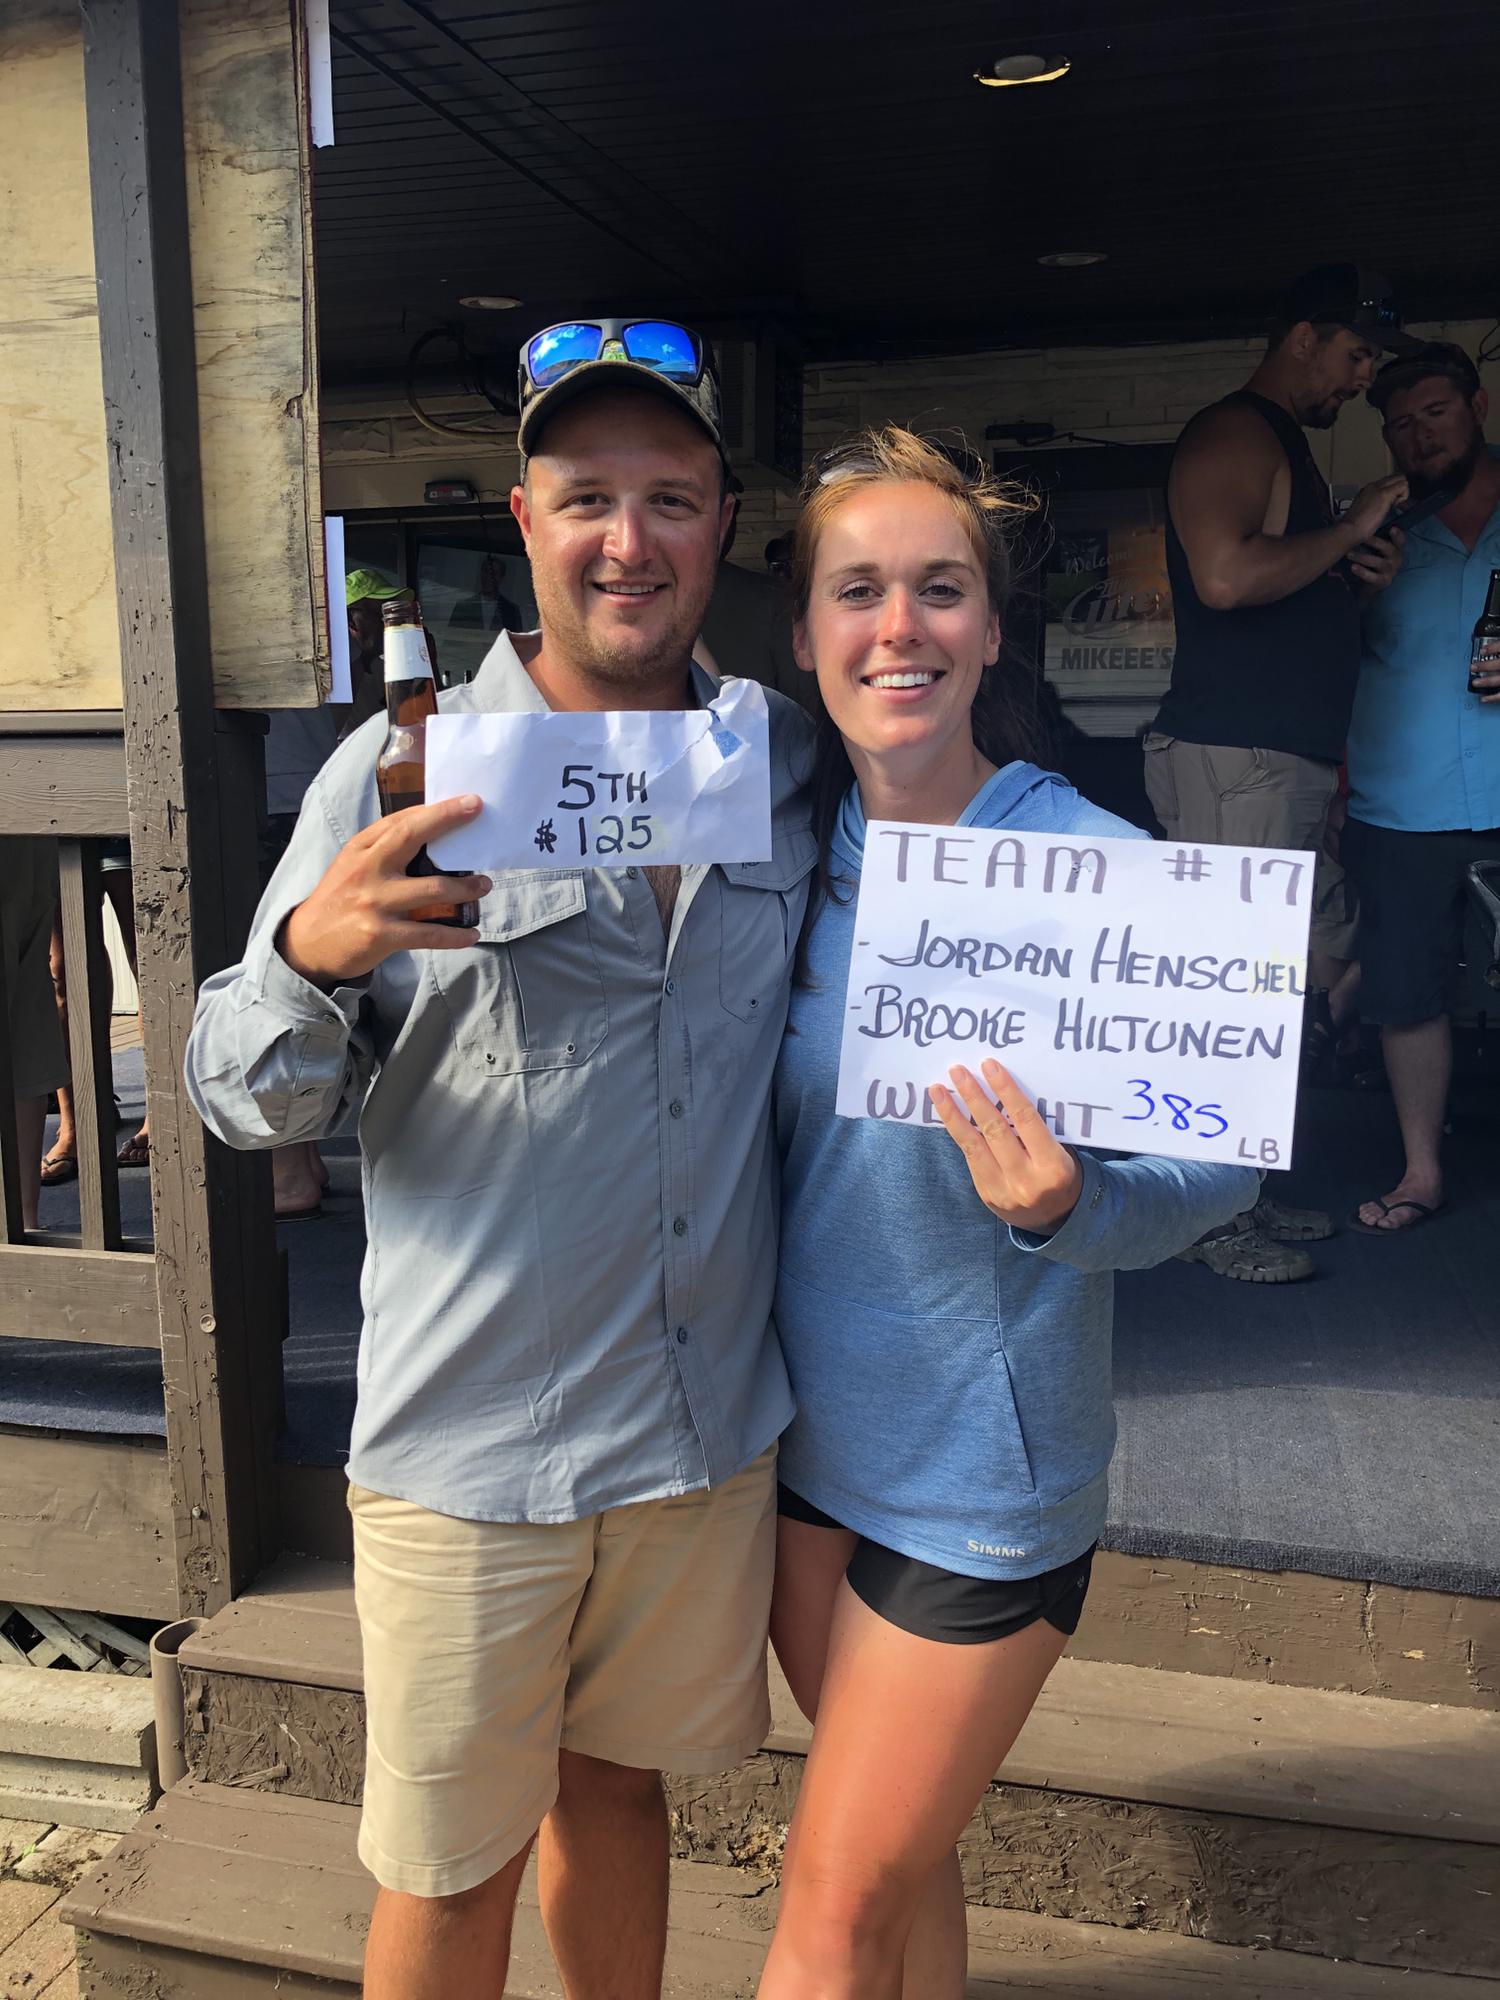 5TH
$125
TEAM #17
- JORDAN HENSCHEL
- BROOKE HILTUNEN
WEIGHT 3.85 LB
Welcome
Miller
MIKEEE'S
SIMMS